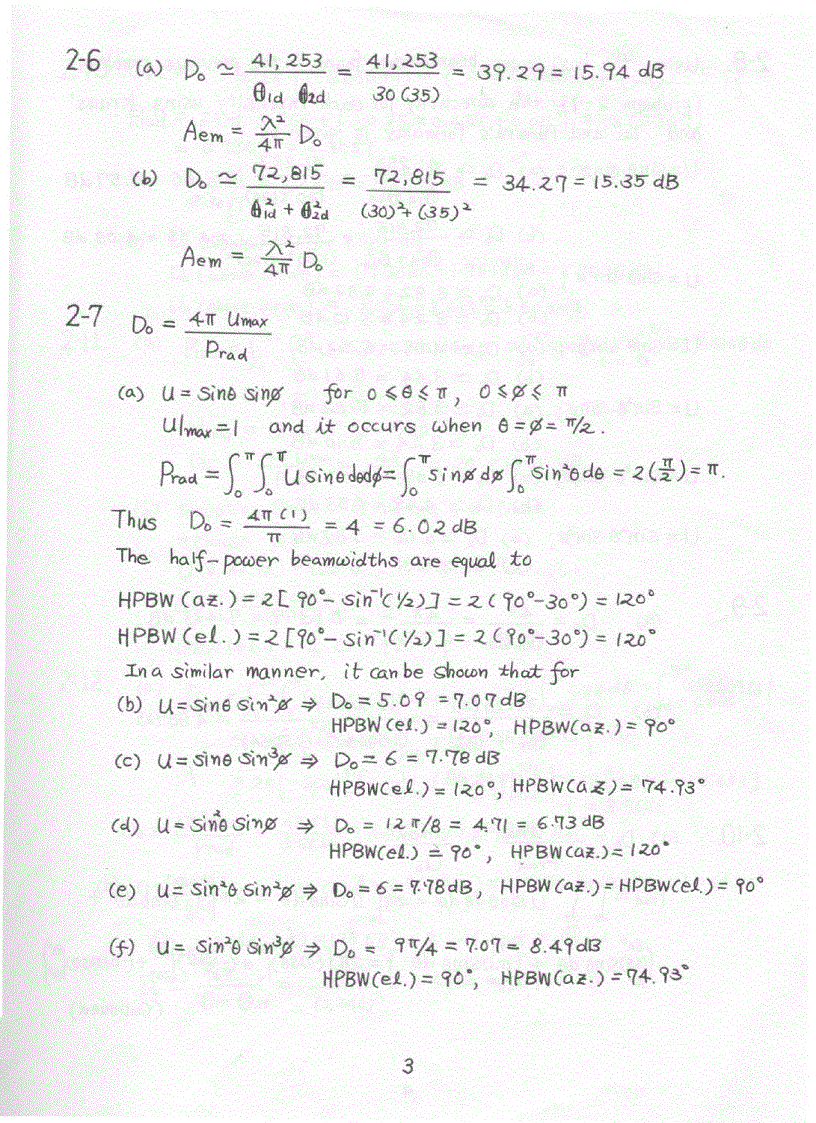 2-6 (a) D₀ ≃ 41,253 / θ₁d θ₂d = 41,253 / 30(35) = 39.29 = 15.94 dB
Aem = λ²/4π D₀
(b) D₀ ≃ 72,815 / θ²₁d + θ²₂d = 72,815 / (30)² + (35)² = 34.27 = 15.35 dB
Aem = λ²/4π D₀
2-7 D₀ = 4π Umax / Prad
(a) U = sinθ sinø for 0 ≤ θ ≤ π, 0 ≤ ø ≤ π
U|max = 1 and it occurs when θ = ø = π/2.
Prad = ∫₀^π ∫₀^π U sinθ dθdø = ∫₀^π sinø dø ∫₀^π sin²θ dθ = 2(π/2) = π.
Thus D₀ = 4π(1)/π = 4 = 6.02 dB
The half-power beamwidths are equal to
HPBW (az.) = 2[90° - sin⁻¹(1/2)] = 2(90°-30°) = 120°
HPBW (el.) = 2[90° - sin⁻¹(1/2)] = 2(90°-30°) = 120°
In a similar manner, it can be shown that for
(b) U = sinθ sin²ø ⇒ D₀ = 5.09 = 7.07 dB
HPBW(el.) = 120°, HPBW(az.) = 90°
(c) U = sinθ sin³ø ⇒ D₀ = 6 = 7.78 dB
HPBW(el.) = 120°, HPBW(az) = 74.93°
(d) U = sin²θ sinø ⇒ D₀ = 12π/8 = 4.71 = 6.73 dB
HPBW(el.) = 90°, HPBW(az.) = 120°
(e) U = sin²θ sin²ø ⇒ D₀ = 6 = 7.78 dB, HPBW(az.) = HPBW(el.) = 90°
(f) U = sin²θ sin³ø ⇒ D₀ = 9π/4 = 7.07 = 8.49 dB
HPBW(el.) = 90°, HPBW(az.) = 74.93°
3